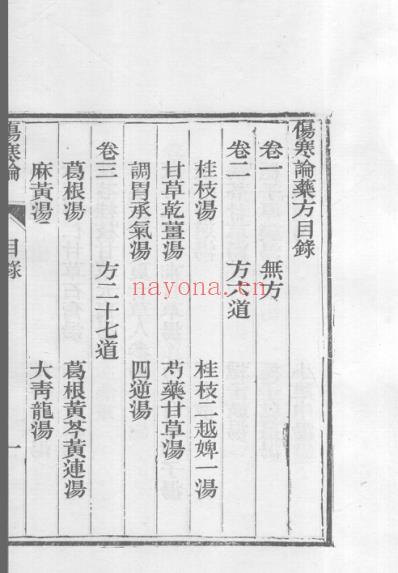 傷寒論藥方目錄
卷一 無方
卷二 方六道
桂枝湯 桂枝二越婢一湯
甘草乾薑湯 芍藥甘草湯
調胃承氣湯 四逆湯
卷三 方二十七道
葛根湯 葛根黃芩黃連湯
麻黃湯 大靑龍湯
傷寒論 目錄 一
nayona.cn